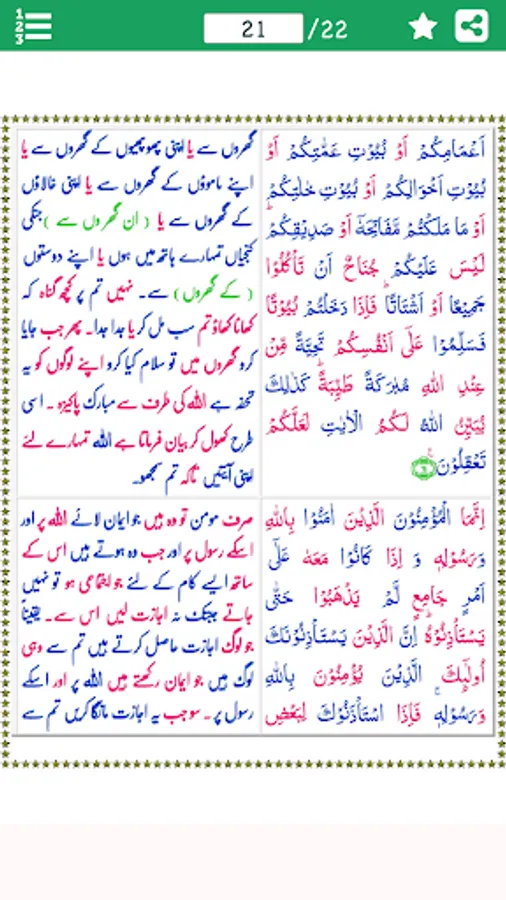 1
2
3
21 /22
اَعْمَامِكُمْ اَوْ بُيُوْتِ عَمّٰتِكُمْ اَوْ
بُيُوْتِ اَخْوَالِكُمْ اَوْ بُيُوْتِ خٰلٰتِكُمْ
اَوْ مَا مَلَكْتُمْ مَّفَاتِحَهٗٓ اَوْ صَدِيْقِكُمْ
لَيْسَ عَلَيْكُمْ جُنَاحٌ اَنْ تَاْكُلُوْا
جَمِيْعًا اَوْ اَشْتَاتًا فَاِذَا دَخَلْتُمْ بُيُوْتًا
فَسَلِّمُوْا عَلٰٓى اَنْفُسِكُمْ تَحِيَّةً مِّنْ
عِنْدِ اللهِ مُبٰرَكَةً طَيِّبَةً كَذٰلِكَ
يُبَيِّنُ اللهُ لَكُمُ الْاٰيٰتِ لَعَلَّكُمْ
تَعْقِلُوْنَ
گھروں سے یا اپنی پھوپھیوں کے گھروں سے یا
اپنے ماموؤں کے گھروں سے یا اپنی خالاؤں
کے گھروں سے یا (ان گھروں سے) جنکی
کنجیاں تمہارے ہاتھ میں ہوں یا اپنے دوستوں
(کے گھروں) سے۔ نہیں تم پر کچھ گناہ کہ
کھانا کھاؤ تم سب مل کر یا جدا جدا۔ پھر جب جایا
کرو گھروں میں تو سلام کیا کرو اپنے لوگوں کو یہ
تحفہ ہے اللہ کی طرف سے مبارک پاکیزہ۔ اسی
طرح کھول کر بیان فرماتا ہے اللہ تمہارے لئے
اپنی آیتیں تاکہ تم سمجھو۔
اِنَّمَا الْمُؤْمِنُوْنَ الَّذِيْنَ اٰمَنُوْا بِاللهِ
وَرَسُوْلِهٖ وَ اِذَا كَانُوْا مَعَهٗ عَلٰٓى
اَمْرٍ جَامِعٍ لَّمْ يَذْهَبُوْا حَتّٰى
يَسْتَاْذِنُوْهُ اِنَّ الَّذِيْنَ يَسْتَاْذِنُوْنَكَ
اُولٰٓئِكَ الَّذِيْنَ يُؤْمِنُوْنَ بِاللهِ
وَرَسُوْلِهٖ فَاِذَا اسْتَاْذَنُوْكَ لِبَعْضِ
صرف مومن تو وہ ہیں جو ایمان لائے اللہ پر اور
اسکے رسول پر اور جب وہ ہوتے ہیں اس کے
ساتھ ایسے کام کے لئے جو اجتماعی ہو تو نہیں
جاتے جبتک نہ اجازت لیں اس سے۔ یقیناً
جو لوگ اجازت حاصل کرتے ہیں تم سے وہی
لوگ ہیں جو ایمان رکھتے ہیں اللہ پر اور اسکے
رسول پر۔ سو جب یہ اجازت مانگا کریں تم سے